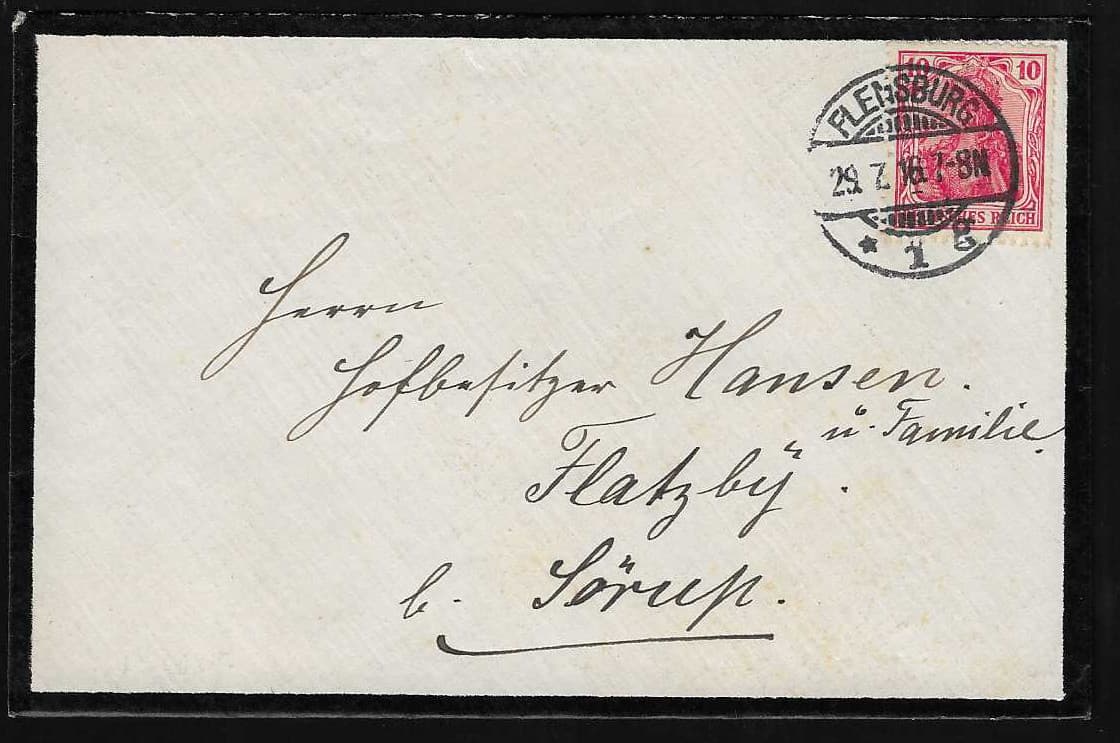 10 10
FLENSBURG
29. 7. 16. 7-8N
* 1 g
REICH
Herrn
Hofbesitzer Hansen.
u. Familie.
Flatzby.
b. Sörup.